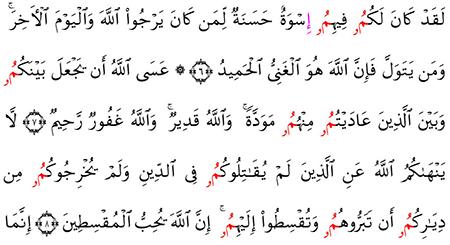 لَقَدْ كَانَ لَكُمُۥ فِيهِمُۥ إِسْوَةٌ حَسَنَةٌ لِّمَن كَانَ يَرْجُوا۟ ٱللَّهَ وَٱلْيَوْمَ ٱلْأَخِرَ ۚ
وَمَن يَتَوَلَّ فَإِنَّ ٱللَّهَ هُوَ ٱلْغَنِىُّ ٱلْحَمِيدُ ﴿٦﴾ ۞ عَسَى ٱللَّهُ أَن يَجْعَلَ بَيْنَكُمُۥ
وَبَيْنَ ٱلَّذِينَ عَادَيْتُمُۥ مِنْهُمُۥ مَوَدَّةً ۚ وَٱللَّهُ قَدِيرٌ ۚ وَٱللَّهُ غَفُورٌ رَّحِيمٌ ﴿٧﴾ لَّا
يَنْهَىٰكُمُ ٱللَّهُ عَنِ ٱلَّذِينَ لَمْ يُقَـٰتِلُوكُمُۥ فِى ٱلدِّينِ وَلَمْ يُخْرِجُوكُمُۥ مِن
دِيَـٰرِكُمُۥ أَن تَبَرُّوهُمُۥ وَتُقْسِطُوٓا۟ إِلَيْهِمُۥ ۚ إِنَّ ٱللَّهَ يُحِبُّ ٱلْمُقْسِطِينَ ﴿٨﴾ إِنَّمَا